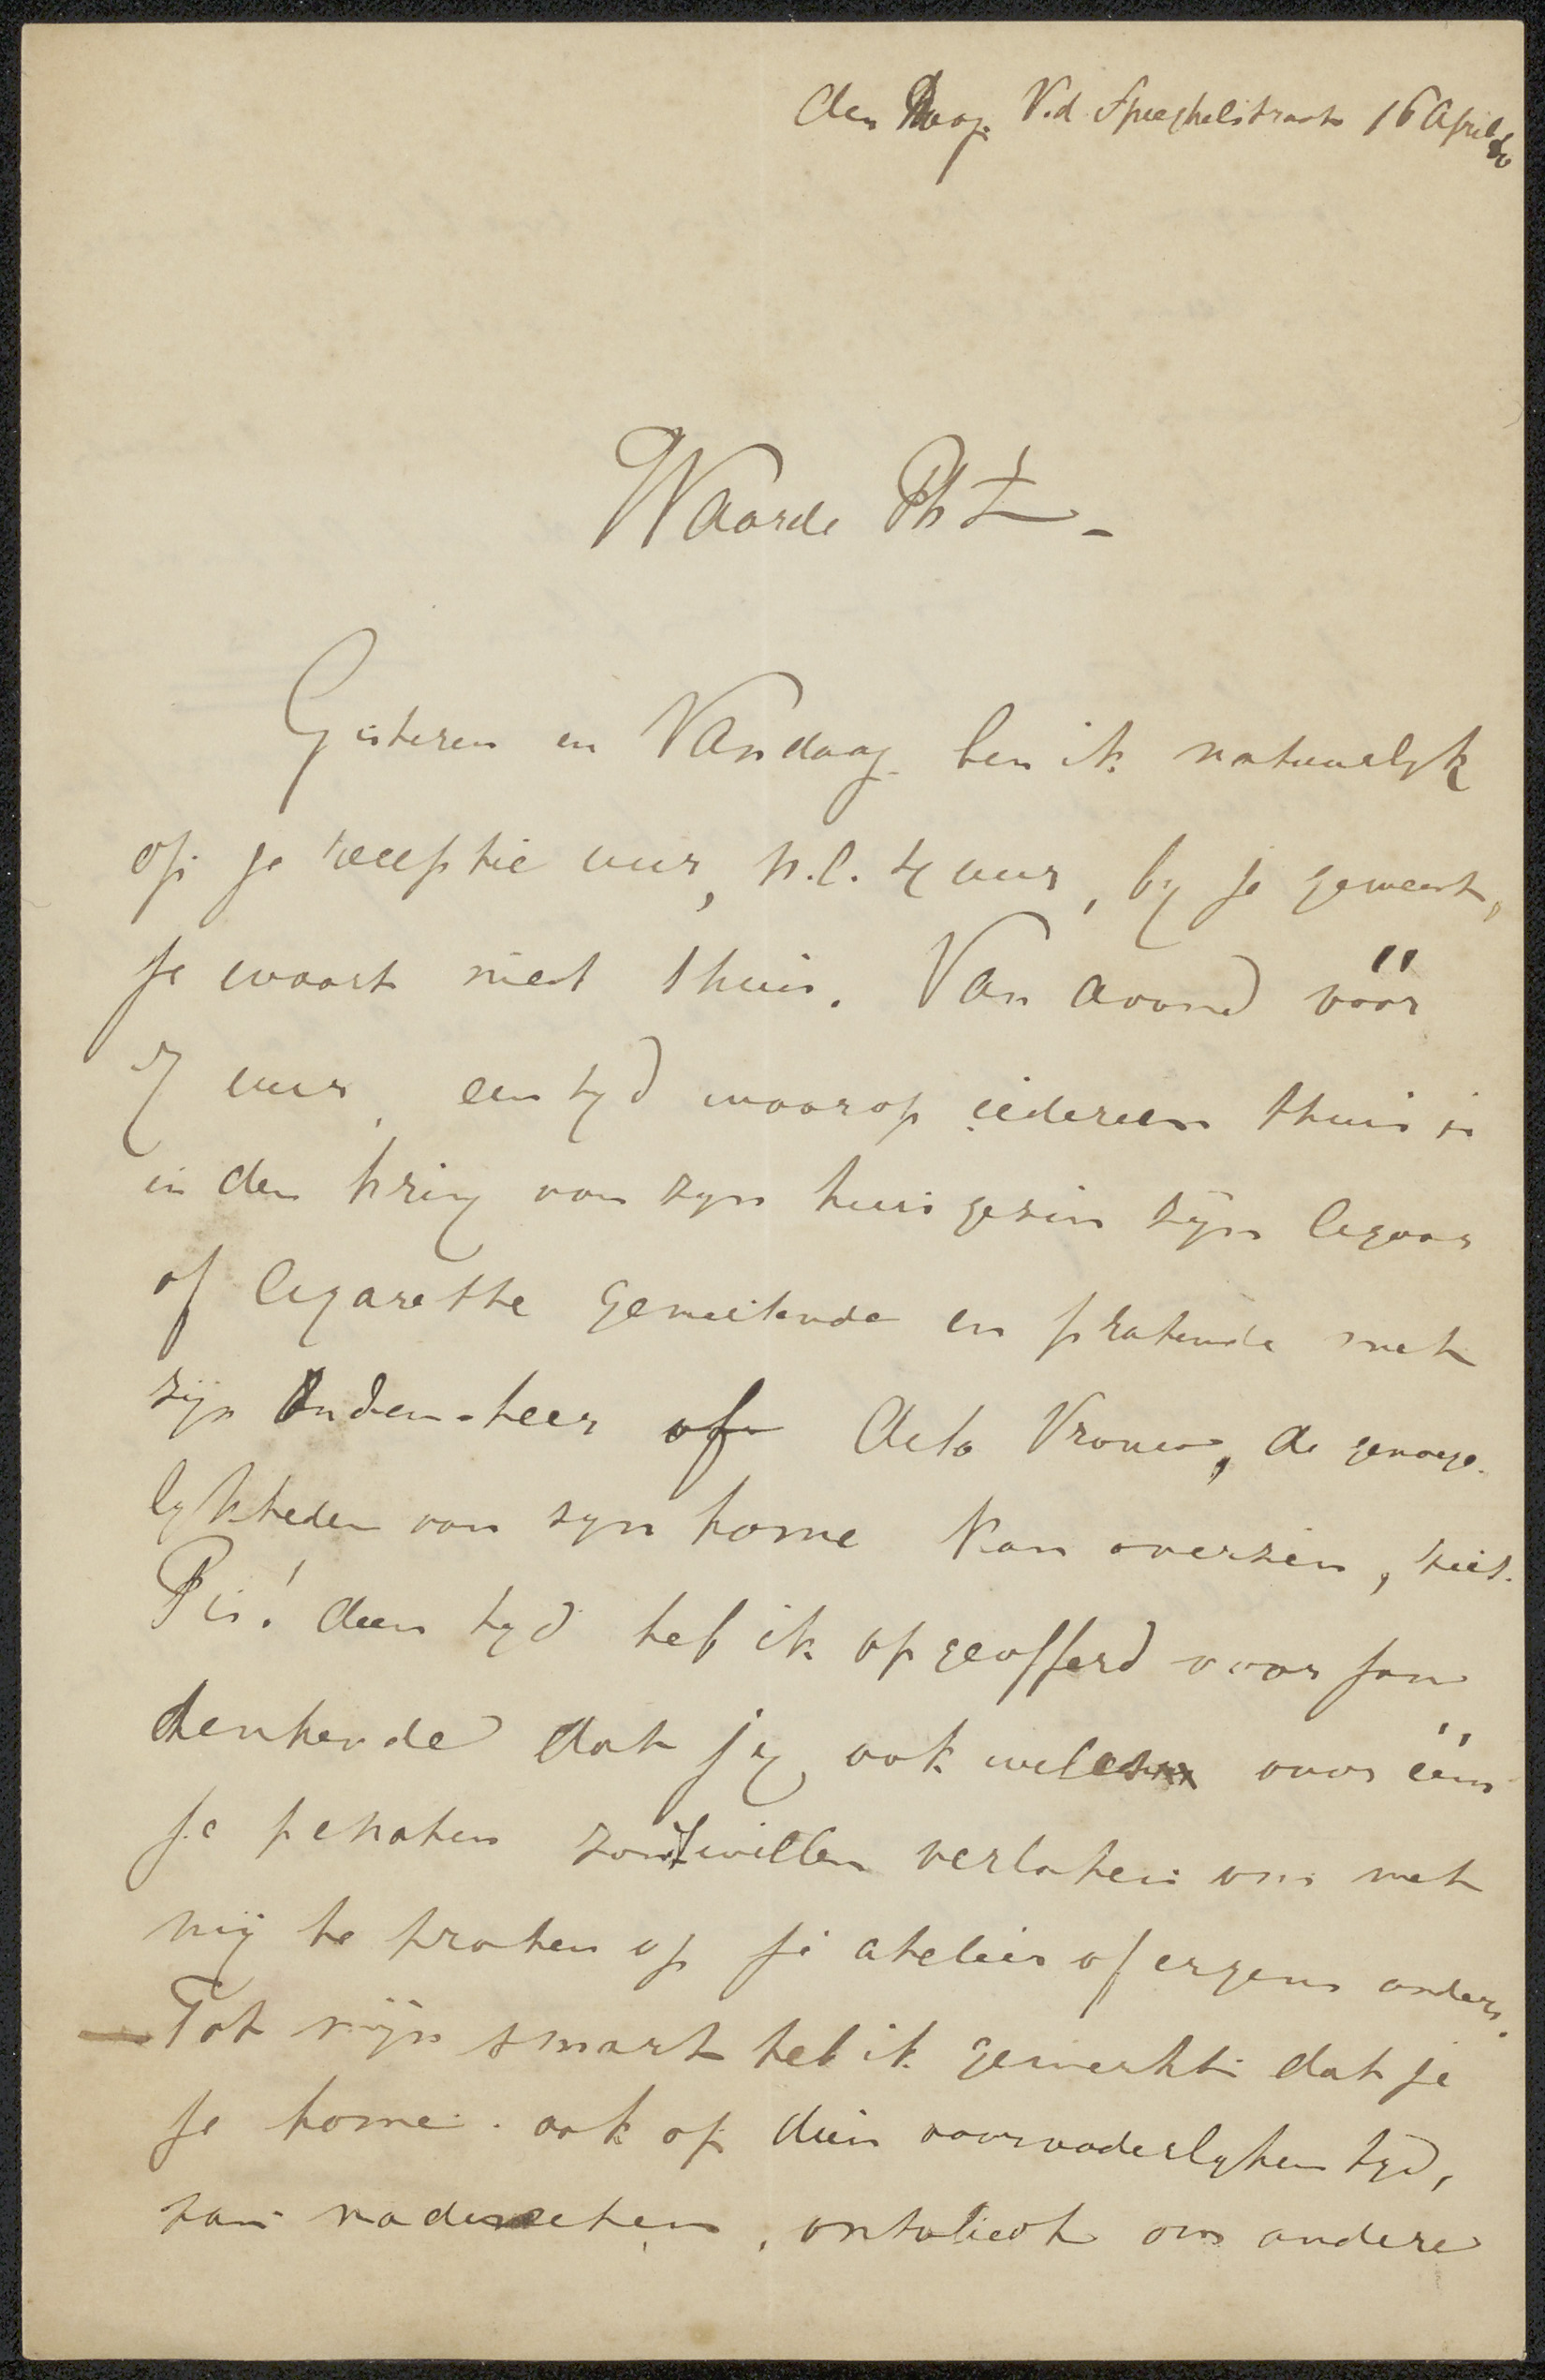 den Haag. V.d. Spieghelstraat 16 April 86
Waarde Ph Z -
Gisteren en Vandaag ben ik natuurlyk
op je receptie uur, n.l. 4 uur, by je geweest,
je waart niet thuis. Van avond vóór
7 uur, een tyd waarop iedereen thuis is
in den kring van zyn huisgezin zijn cigaar
of cigarette genietende en pratende met
zijn Ouden-heer of dito Vrouw, de genoege-
lykheden van zyn home kan overzien,
Pis! dien tyd heb ik opgeofferd voor jou
denkende dat jy ook wel voor één
je penaten zoudt willen verlaten om met
mij te praten op je atelier of ergens anders.
— Tot mijn smart heb ik gemerkt dat je
je home ook op dien aarsvaderlyken tyd,
van na den eten, ontvliedt om andere